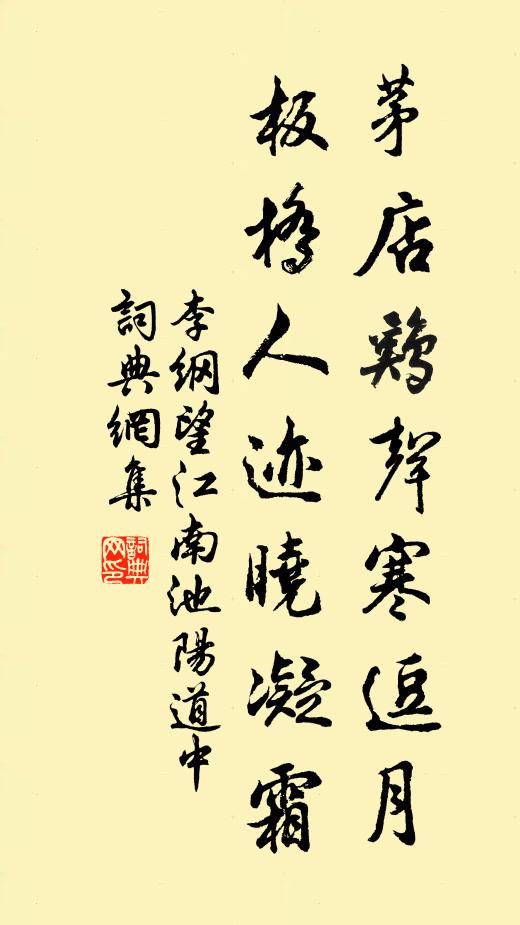 茅店鷄聲寒逗月
板橋人迹曉凝霜
李綱望江南池陽道中
詞典網集
詞典
网印